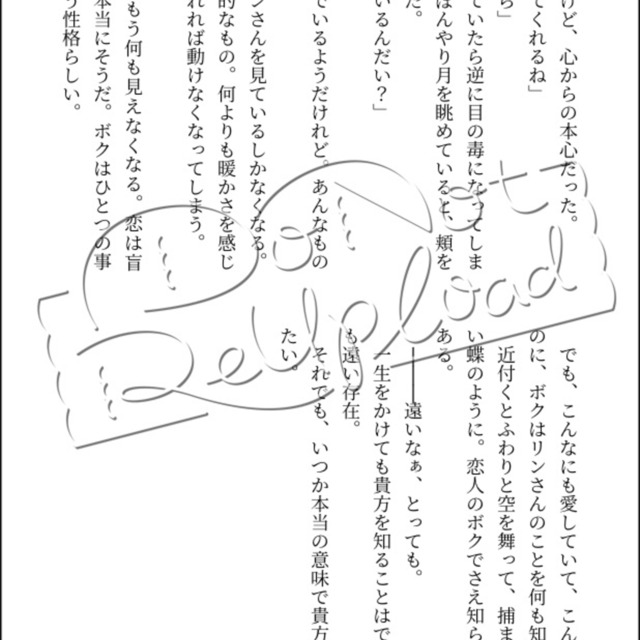 けど、心からの本心だった。
てくれるね」
ら」
ていたら逆に目の毒になってしま
ぼんやり月を眺めていると、頬を
た。
いるんだい？」
でいるようだけれど。あんなもの
ンさんを見ているしかなくなる。
的なもの。何よりも暖かさを感じ
れれば動けなくなってしまう。
もう何も見えなくなる。恋は盲
本当にそうだ。ボクはひとつの事
う性格らしい。
でも、こんなにも愛していて、こん
のに、ボクはリンさんのことを何も知
近付くとふわりと空を舞って、捕ま
い蝶のように。恋人のボクでさえ知ら
ある。
――遠いなぁ、とっても。
一生をかけても貴方を知ることはで
も遠い存在。
それでも、いつか本当の意味で貴方
たい。
Do Not
Reupload